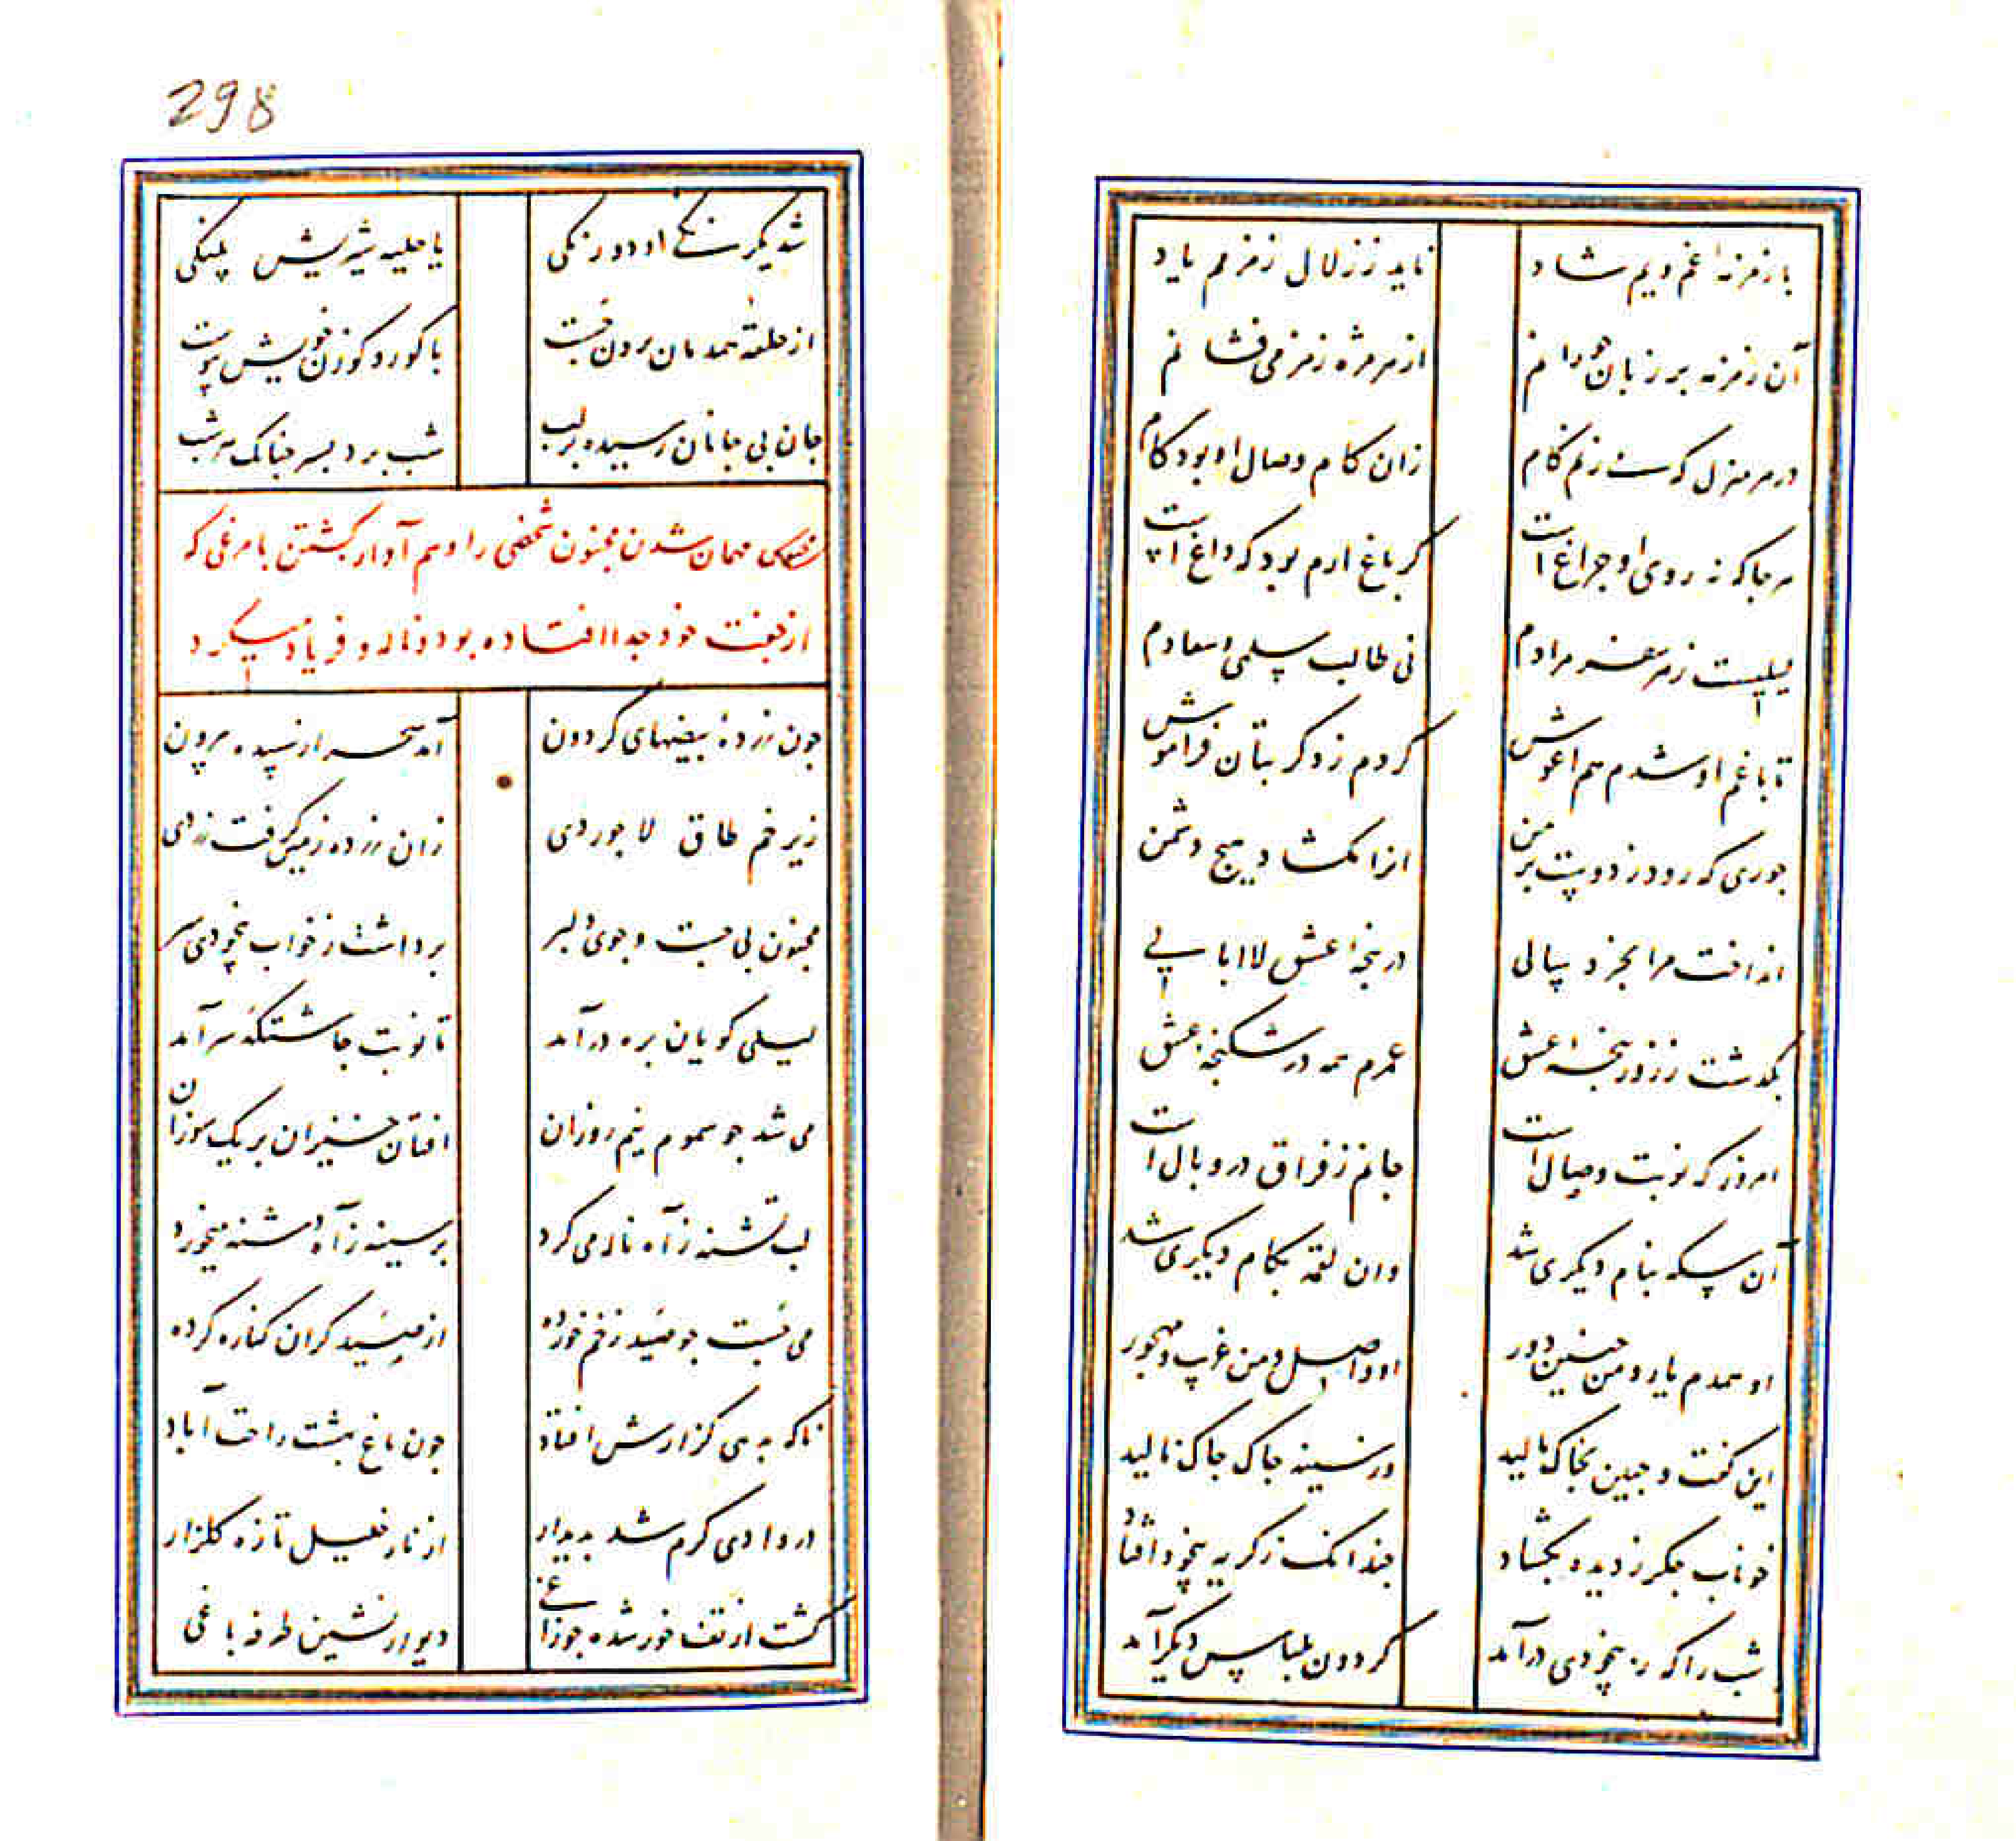 با زمزمه غم ویم شاد
ناید ز زلال زمزمم یاد
آن زمزمه بر زبان چو رانم
از هر مژه زمزمی فشانم
در هر منزل که می زنم گام
زان گام وصال او بود کام
هر جا که نه روی او چراغ است
گر باغ ارم بود که داغ است
لیلیست ز هر سفر مرادم
نی طالب سلمی و سعادم
تا با غم او شدم هم آغوش
کردم ز دگر بتان فراموش
جوری که رود ز دوست بر من
آنرا مکشاد هیچ دشمن
انداخت مرا بخردسالی
در پنجه عشق لاابالی
بگذشت ز زور پنجه عشق
عمرم همه در شکنجه عشق
امروز که نوبت وصال است
جانم ز فراق در وبال است
آن سکه بنام دیگری شد
وان لقمه بکام دیگری شد
او همدم یار و من چنین دور
او واصل و من غریب و مهجور
این گفت و جبین بخاک مالید
وز سینه چاک چاک نالید
خوناب جگر ز دیده بگشاد
چندانک ز گریه بیخود افتاد
شب را که ز بیخودی درآمد
گردون بلباس دیگر آمد
298
شد یکرنگی او دورنگی
یا حلیه شیریش پلنگی
از حلقه همدمان برون جست
با گور و گوزن خویش پیوست
جان بی جانان رسیده بر لب
شب برد بسر چنانک هر شب
مهمان شدن مجنون شخصی را و هم آواز گشتن با مرغی که
از جفت خود جدا افتاده بود و ناله و فریاد میکرد
چون زرده بیضهای گردون
آمد سحر از سپیده بیرون
زیر خم طاق لاجوردی
زان زرده زمین گرفت زردی
مجنون بی جست و جوی دلبر
برداشت ز خواب بیخودی سر
لیلی گویان بره درآمد
تا نوبت چاشتگه سرآمد
می شد چو سموم نیم روزان
افتان خیزان بریک سوزان
لب تشنه ز آه ناله می کرد
بر سینه ز آه دشنه میخورد
می جست چو صید زخم خورده
از صیدگران کناره کرده
ناگه به رهی گزارش افتاد
چون باغ بهشت راحت آباد
در وادی گرم شد پدیدار
از نار خلیل تازه گلزار
گشت از تف خور شده چو داغی
دیوار نشین طرفه باغی